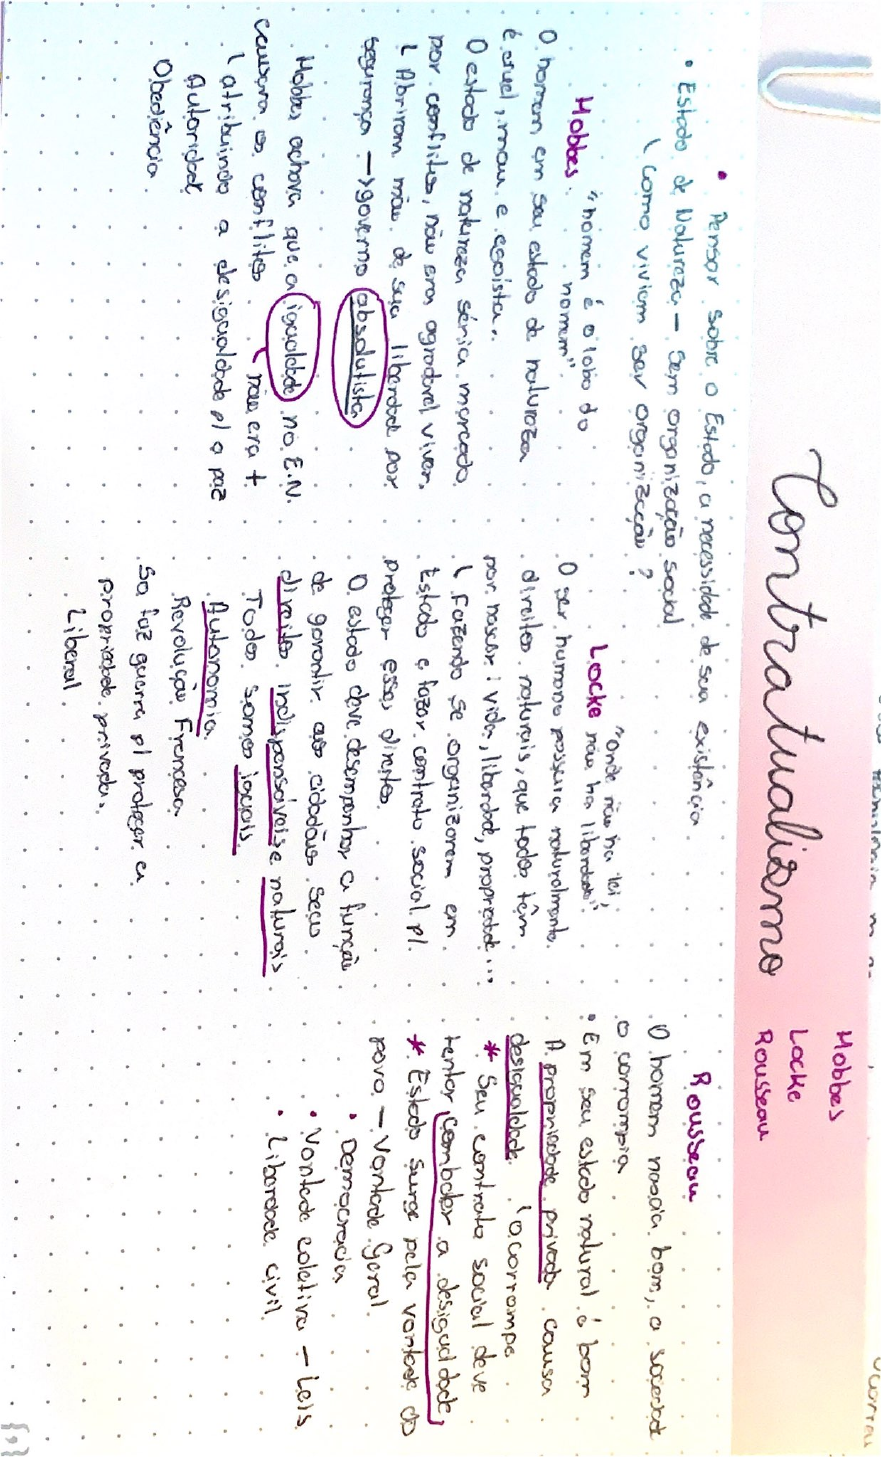 Contratualismo
Hobbes
Locke
Rousseau
• Pensar sobre o Estado, a necessidade de sua existência
• Estado de Natureza - Sem organização social
como viviam ser organização?
Hobbes "homem é o lobo do
homem".
O homem em seu estado de natureza
é cruel, mau e egoísta.
O estado de natureza séria marcado
por conflitos, não era agradável viver.
Abriram mão de sua liberdade por
segurança → governo absolutista
Hobbes achava que a igualdade no E.N.
causava os conflitos não era +
atribuindo a desigualdade p/ a paz
Autoridade
Obediência
Locke "Onde não ha lei,
não ha liberdade"
O ser humano possuia naturalmente
direitos naturais, que todos têm
por nascer: vida, liberdade, propriedade...
Fazendo se organizarem em
Estado e fazer contrato social p/
proteger esses direitos.
O estado deve desempenhar a função
de garantir aos cidadãos seus
direitos indispensáveis e naturais
Todos somos iguais.
Autonomia
Revolução Francesa
So faz guerra p/ proteger a
propriedade privada.
Liberal
Rousseau
O homem nascia bom, a sociedade
o corrompia
• Em seu estado natural é bom
A propriedade privada causa
desigualdade. o corrompe
* Seu contrato social deve
tentar combater a desigualdade,
* Estado surge pela vontade do
povo - Vontade Geral.
• Democracia
• Vontade coletiva - Leis
• Liberdade civil
ocorreu